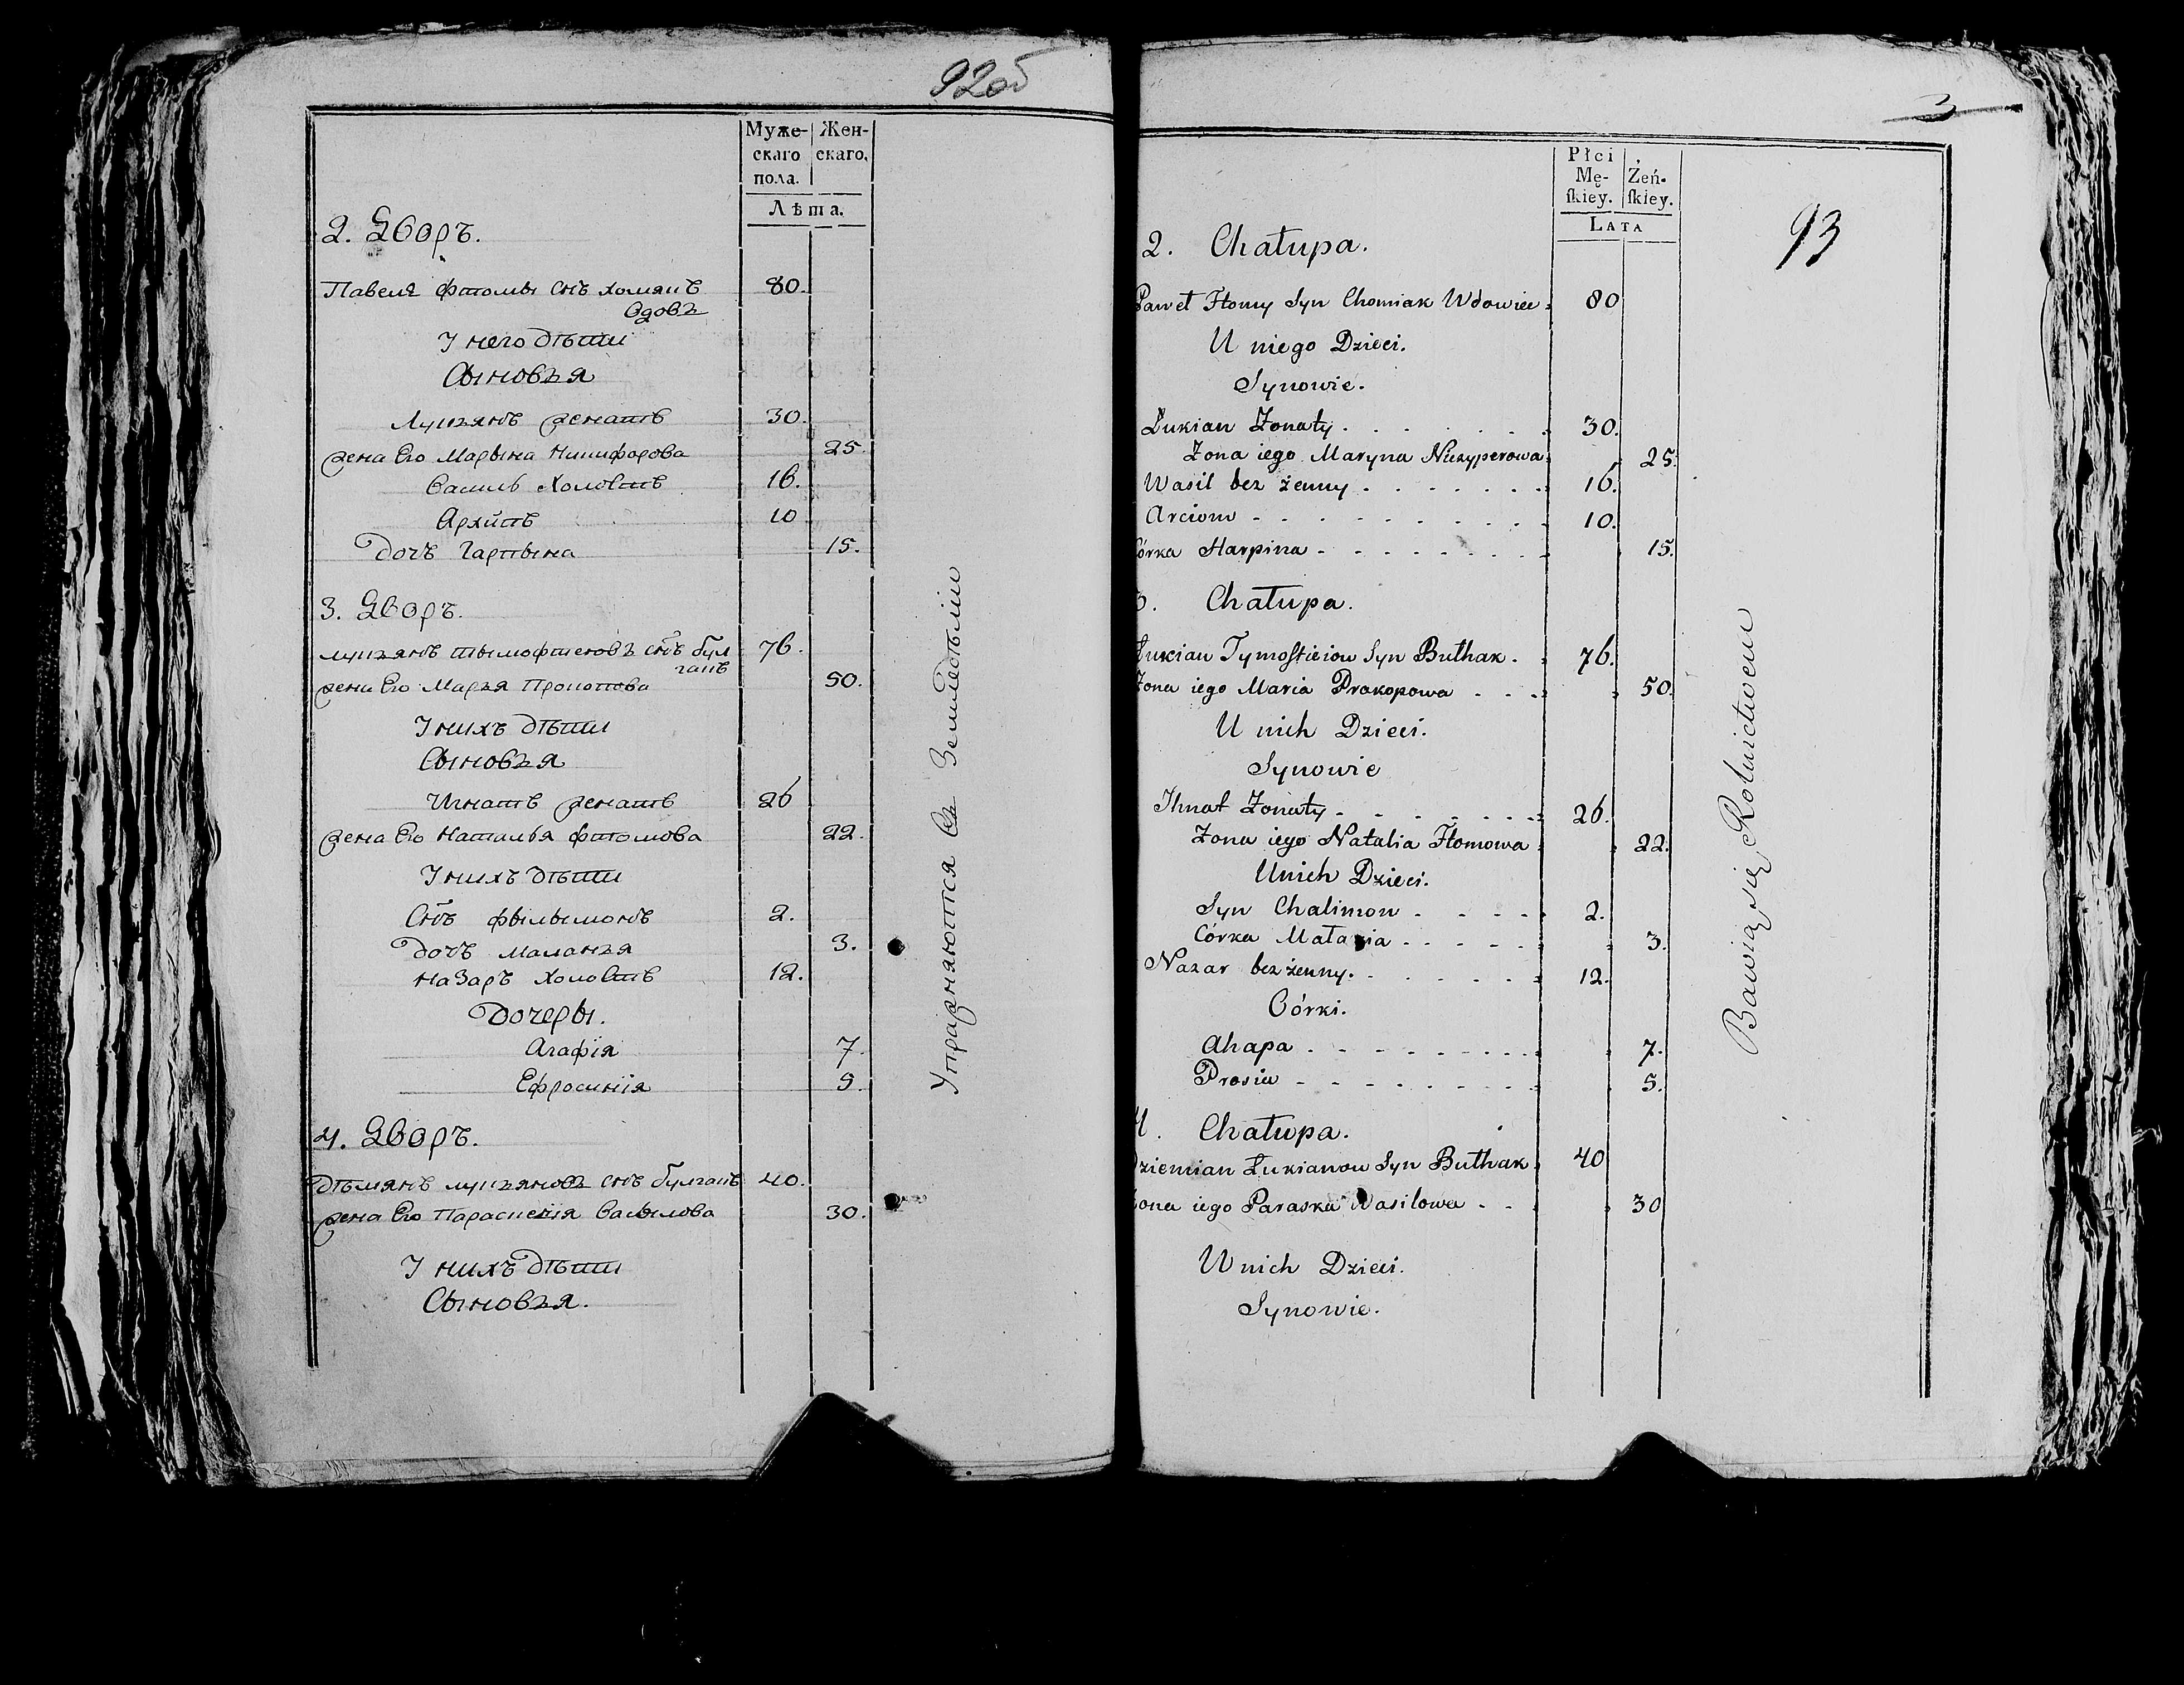 92об
Муже-
скаго
пола.
Жен-
скаго.
Лѣта.
2. Дворъ.
Павелъ Фтомы снъ хомякъ 80.
Вдовъ
У него дѣти
Сыновья
Лукъянъ женатъ 30.
жена Его Марына Никифорова 25.
Василь Холостъ 16.
Архипъ 10
Дочъ Гарпына 15.
3. Дворъ.
лукъянъ тымофтеювъ снъ бул 76.
гакъ
жена Его Марья Прокопова 50.
У нихъ дѣти
Сыновья
Игнатъ женатъ 26
жена Его Наталья Фтомова 22.
У нихъ дѣти
Снъ Филымонъ 2.
Дочъ маланъя 3.
назаръ Холостъ 12.
Дочеры.
Агафія 7.
Ефросинія 5.
4. Дворъ.
Дѣмянъ лукъяновъ снъ булгакъ 40.
жена Его Параскевія Васылова 30.
У нихъ дѣти
Сыновья.
Упражняются въ Земледѣліи
3
93
Płci
Mę-
skiey.
Żeń-
skiey.
LATA
2. Chałupa.
Paweł Ftomy Syn Chomiak Wdowiec 80
U niego Dzieci.
Synowie.
Łukian Żonaty 30.
Żona iego Maryna Niczyperowa 25.
Wasil bez żenny 16.
Arciom 10.
Córka Harpina 15.
3. Chałupa.
Łukian Tymoftieiow Syn Bułhak. 76.
Żona iego Maria Prokopowa 50.
U nich Dzieci.
Synowie
Ihnat Żonaty 26.
Żona iego Natalia Ftomowa 22.
U nich Dzieci.
Syn Chalimon 2.
Córka Małania 3.
Nazar bez żenny. 12.
Córki.
Ahapa 7.
Prosia 5.
4. Chałupa.
Dziemian Łukianow Syn Buthak 40
Żona iego Paraska Wasilowa 30
U nich Dzieci.
Synowie.
Bawią się Rolnictwem